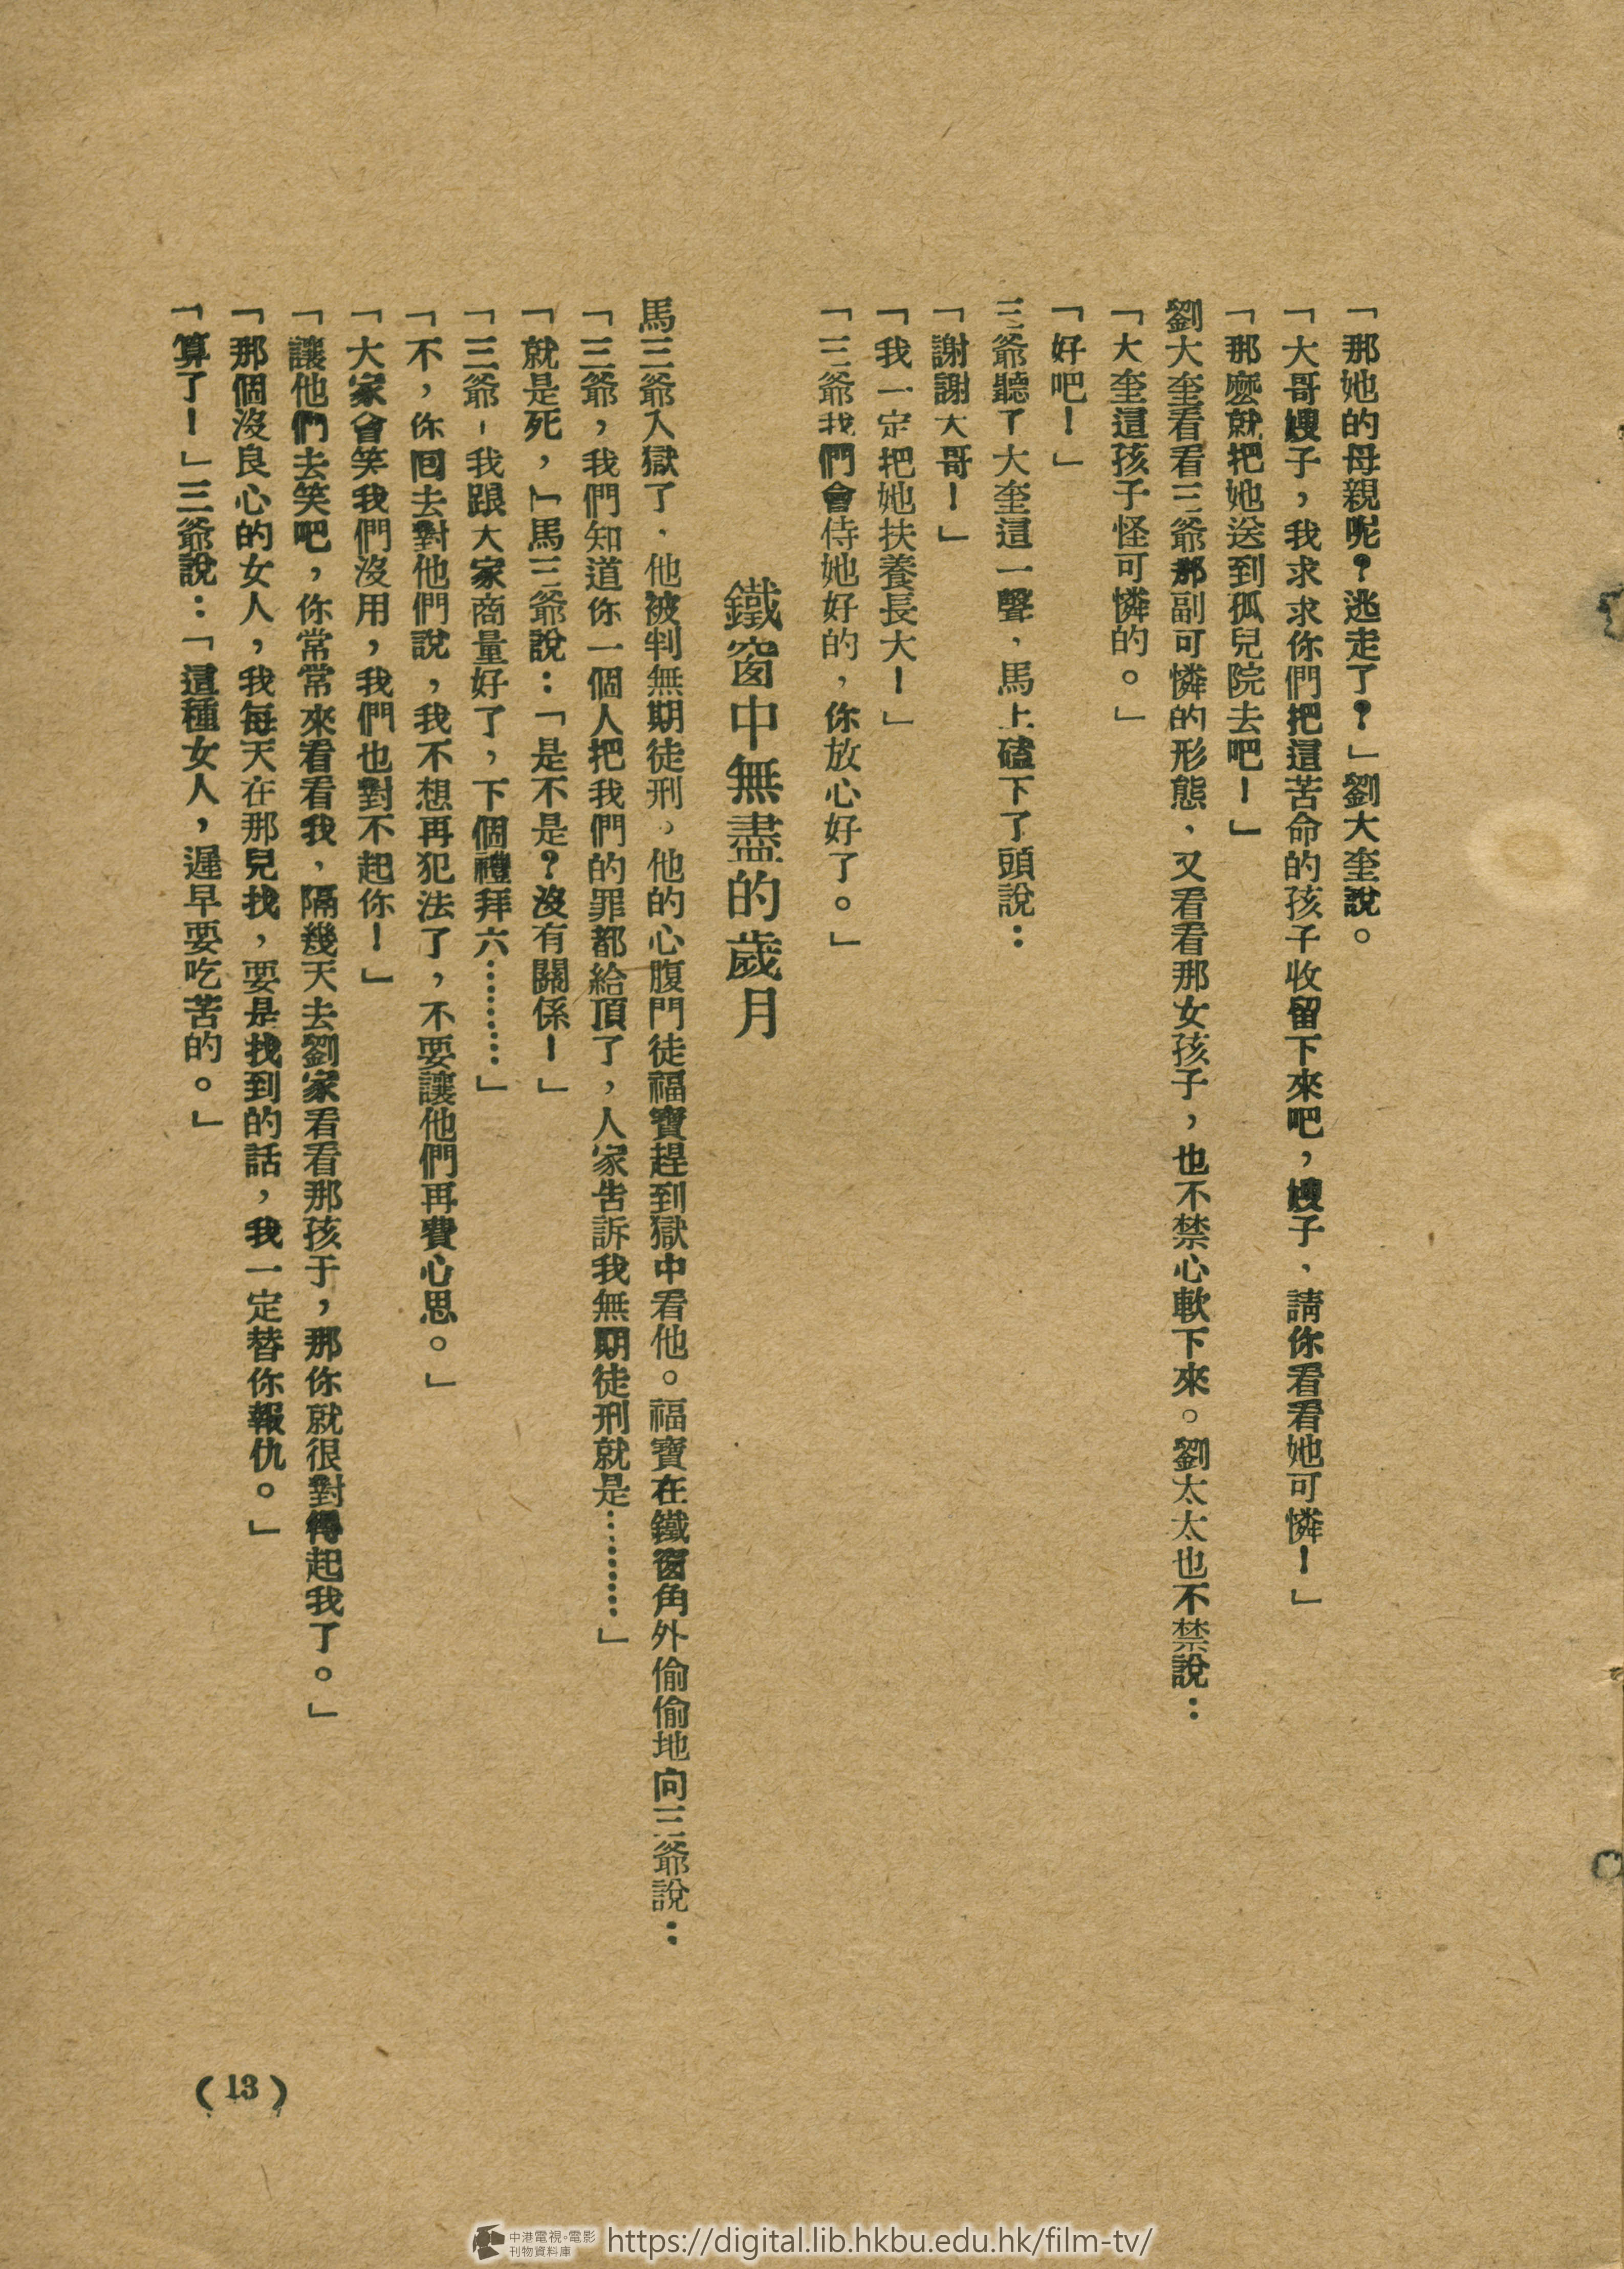 「那她的母親呢？逃走了？」劉大奎說。
「大哥嫂子，我求求你們把這苦命的孩子收留下來吧，嫂子、請你看看她可憐！」
「那麼就把她送到孤兒院去吧！」
劉大奎看看三爺那副可憐的形態，又看看那女孩子，也不禁心軟下來。劉太太也不禁說：
「大奎這孩子怪可憐的。」
「好吧！」
三爺聽了大奎這一聲，馬上磕下了頭說：
「謝謝大哥！」
「我一定把她扶養長大！」
「三爺我們會侍她好的，你放心好了。」
鐵窗中無盡的歲月
馬三爺入獄了．他被判無期徒刑。他的心腹門徒福寶趕到獄中看他。福寶在鐵窗角外偷偷地向三爺說：
「三爺，我們知道你一個人把我們的罪都給頂了，人家告訴我無期徒刑就是………」
「就是死，」馬三爺說：「是不是？沒有關係！」
「三爺，我跟大家商量好了，下個禮拜六………」
「不，你回去對他們說，我不想再犯法了，不要讓他們再費心思。」
「大家會笑我們沒用，我們也對不起你！」
「讓他們去笑吧，你常常來看看我，隔幾天去劉家看看那孩于，那你就很對得起我了。」
「那個沒良心的女人，我每天在那兒找，要是找到的話，我一定替你報仇。」
「算了！」三爺說：「這種女人，遲早要吃苦的。」
(13)
中港電視·電影
刊物資料庫
https://digital.lib.hkbu.edu.hk/film-tv/